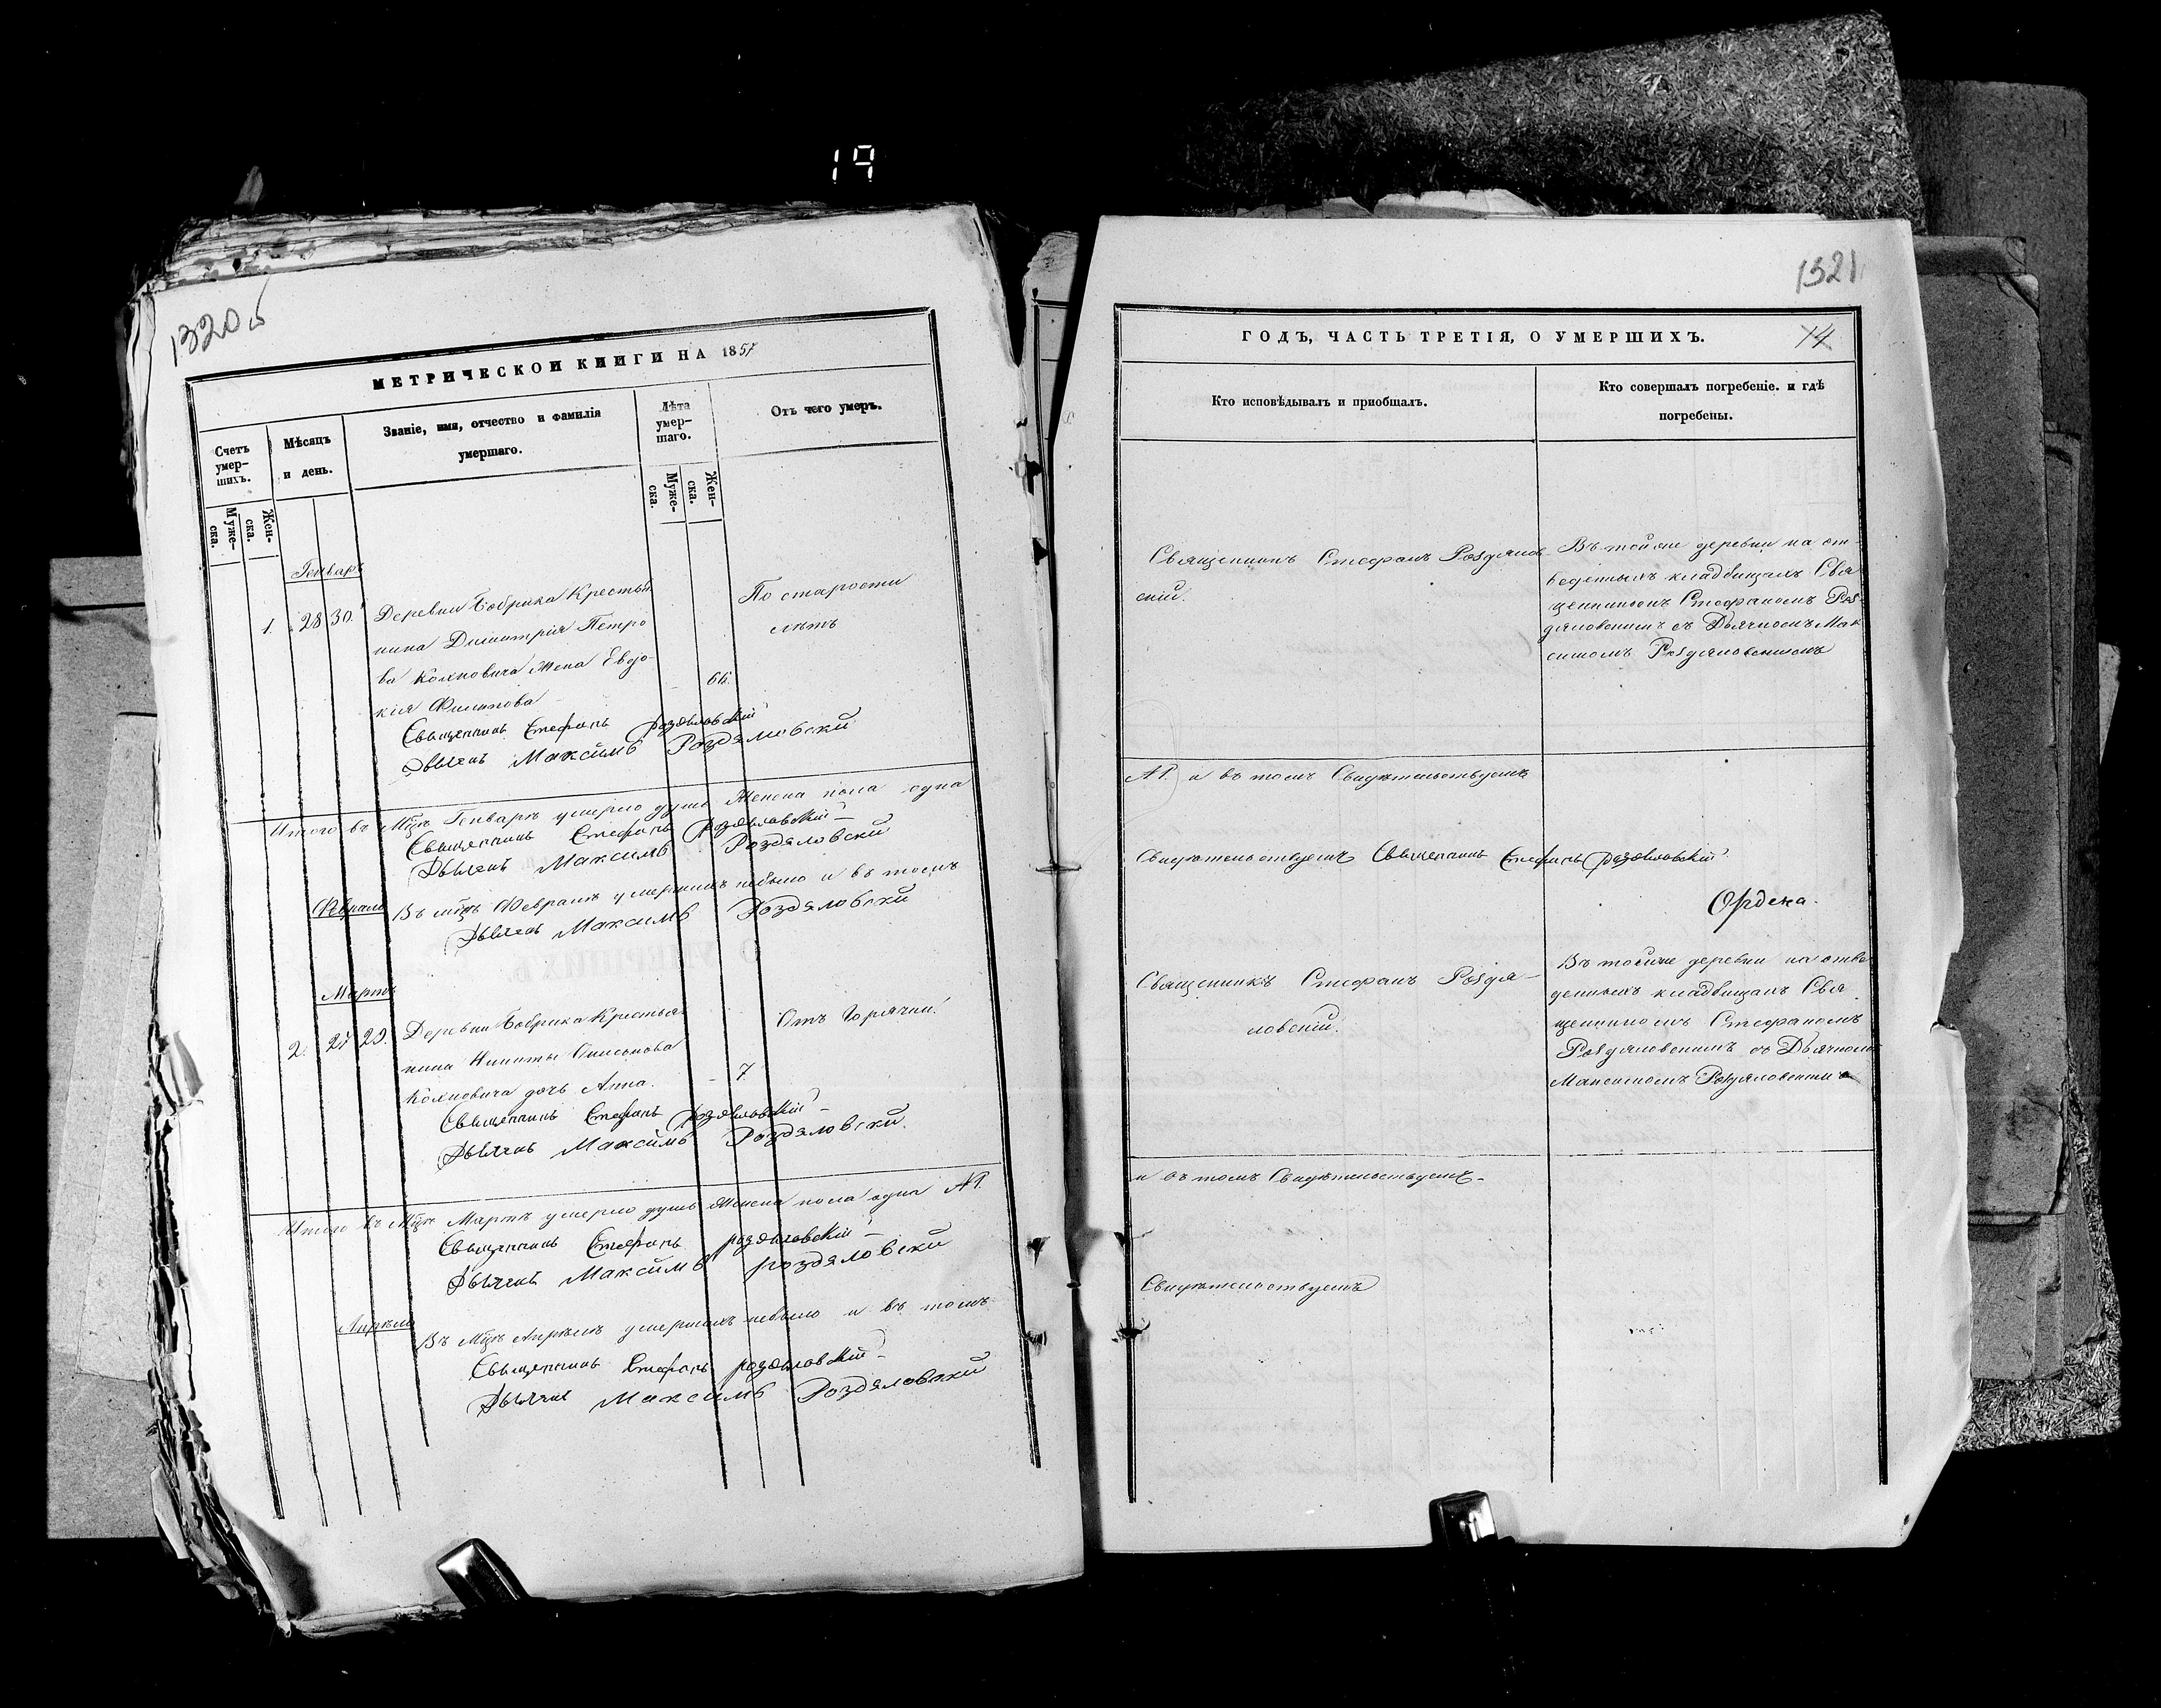 19
1320 об
МЕТРИЧЕСКОЙ КНИГИ НА 1857
Счетъ умер-шихъ.
Муже-ска.
Жен-ска.
Мѣсяцъ и день.
Званіе, имя, отчество и фамилія
умершаго.
Лѣта умер-шаго.
Муже-ска.
Жен-ска.
Отъ чего умеръ.
Генварь
1. 28 30. Деревни Бобрика Крестья
нина Димитрія Петро
ва Колновича Жена Евдо-
кія Филипова
66.
По старости
лѣтъ
Священникъ Стефанъ Роздяловскій
Дьячекъ Максимъ Роздяловскій
Итого въ Мцѣ Генварѣ умерло душъ Женска пола одна
Священникъ Стефанъ Роздяловскій
Дьячекъ Максимъ Роздяловскій
Февраль
Въ мцѣ Февралѣ умершихъ небыло и въ томъ
Дьячекъ Максимъ Роздяловскій
Мартъ
2. 27 29. Деревни Бобрика Крестья
нина Никиты
Колновича дочь Анна.
7.
Отъ Горячки.
Священникъ Стефанъ Роздяловскій
Дьячекъ Максимъ Роздяловскій.
Итого въ Мцѣ Мартѣ умерло душъ Женска пола одна №1.
Священникъ Стефанъ Роздяловскій
Дьячекъ Максимъ Роздяловскій
Апрѣль
Въ Мцѣ Апрѣлѣ умершихъ небыло и въ томъ
Священникъ Стефанъ Роздяловскій
Дьячекъ Максимъ Роздяловскій
1321
ГОДЪ, ЧАСТЬ ТРЕТІЯ, О УМЕРШИХЪ.
14
Кто исповѣдывалъ и приобщалъ.
Кто совершалъ погребеніе. и гдѣ
погребены.
Священникъ Стефанъ Роздялов-
скій.
Въ тойже деревни на от-
веденныхъ кладбищахъ Свя
щенникомъ Стефаномъ Роз-
дяловскимъ съ Дьячкомъ Мак
симомъ Роздяловскимъ
№1. и въ томъ Свидѣтельствуемъ
Свидѣтельствуемъ Священникъ Стефанъ Роздяловскій
Ордена.
Священникъ Стефанъ Роздя-
ловскій.
Въ тойже деревни на отве
денныхъ кладбищахъ Свя
щенникомъ Стефаномъ
Роздяловскимъ съ Дьячкомъ
Максимомъ Роздяловскимъ
и въ томъ Свидѣтельствуемъ.
Свидѣтельствуемъ